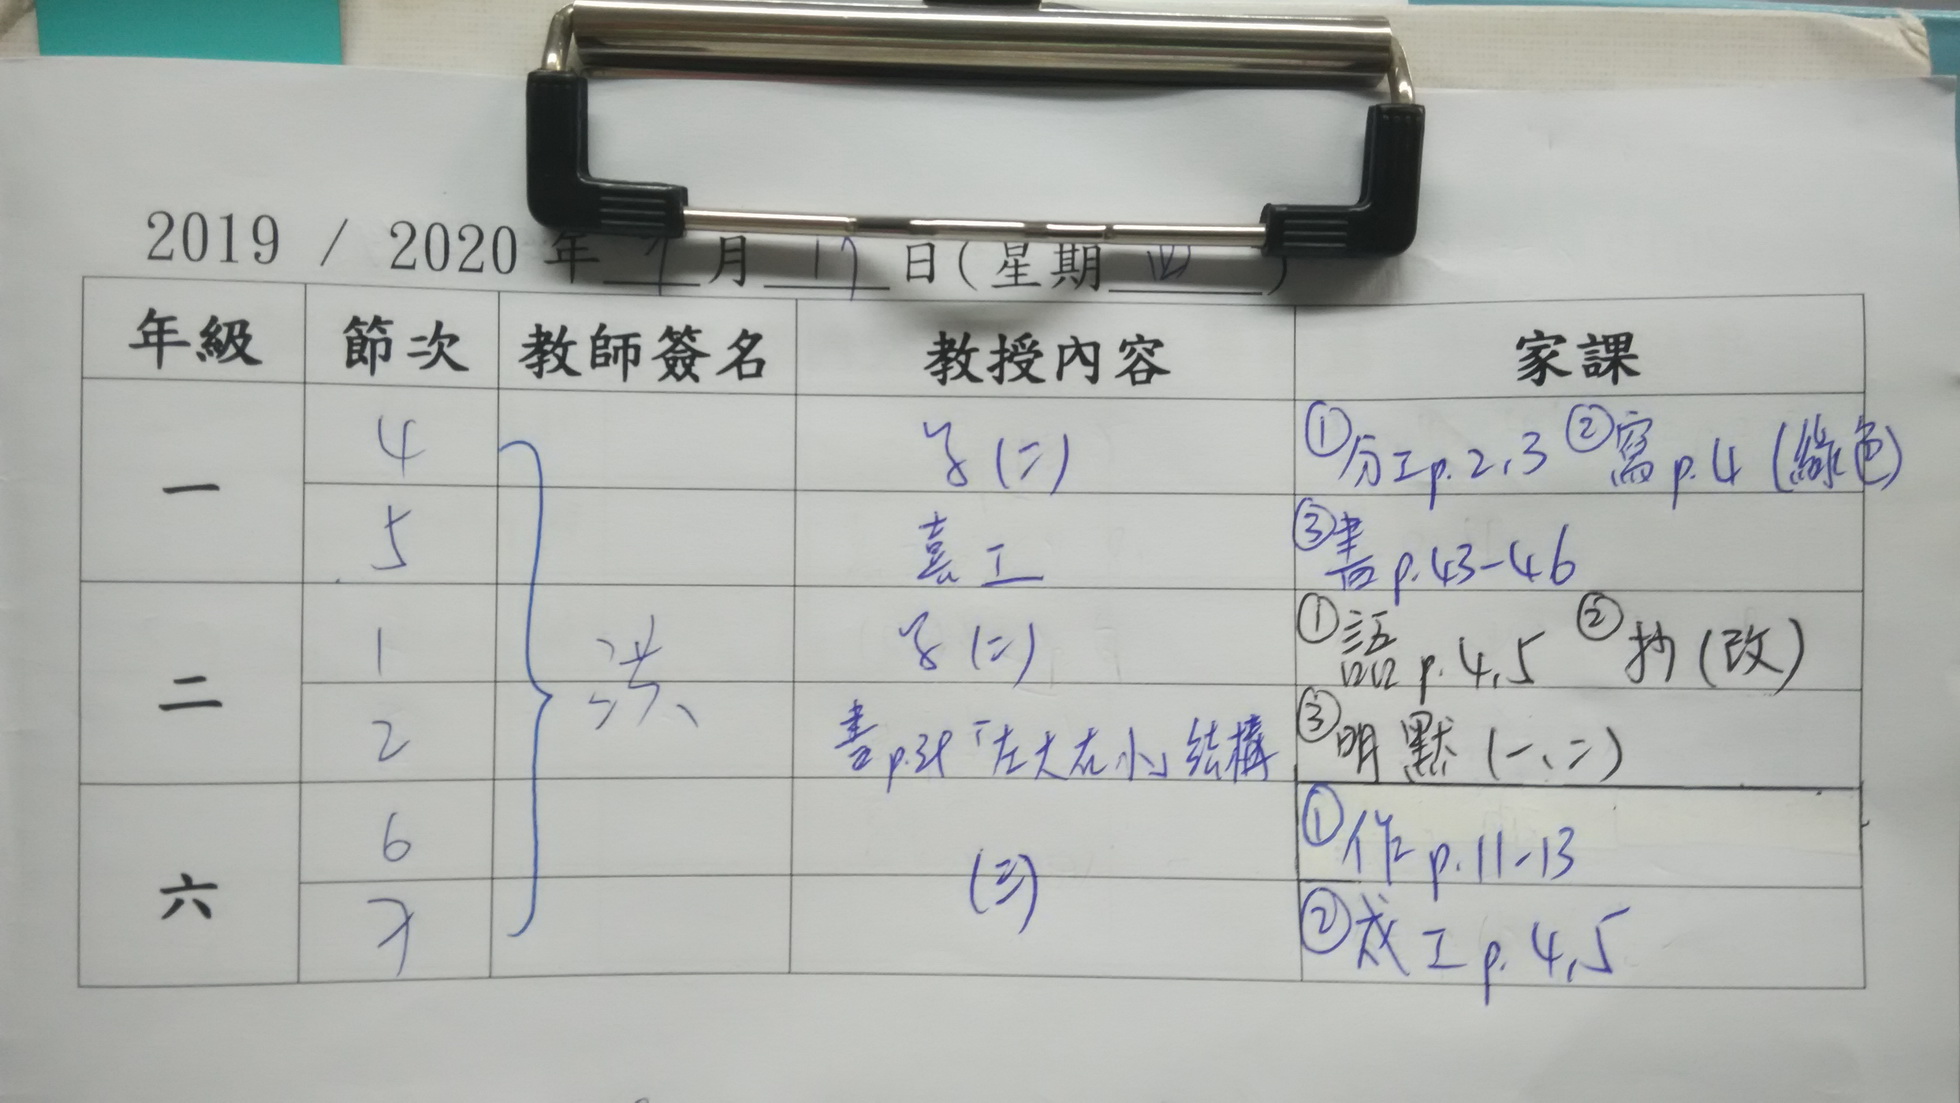 2019 / 2020 年 月 17 日(星期 四 )
年級 節次 教師簽名 教授內容 家課
一 4 (二) ①分工p.2,3 ②寫p.4 (綠色)
5 工 ③書p.43-46
二 1 (二) ①語p.4,5 ②抄(改)
2 洪 書p.39「左大右小」結構 ③明默(一、二)
六 6 (三) ①作p.11-13
7 ②成工p.4,5